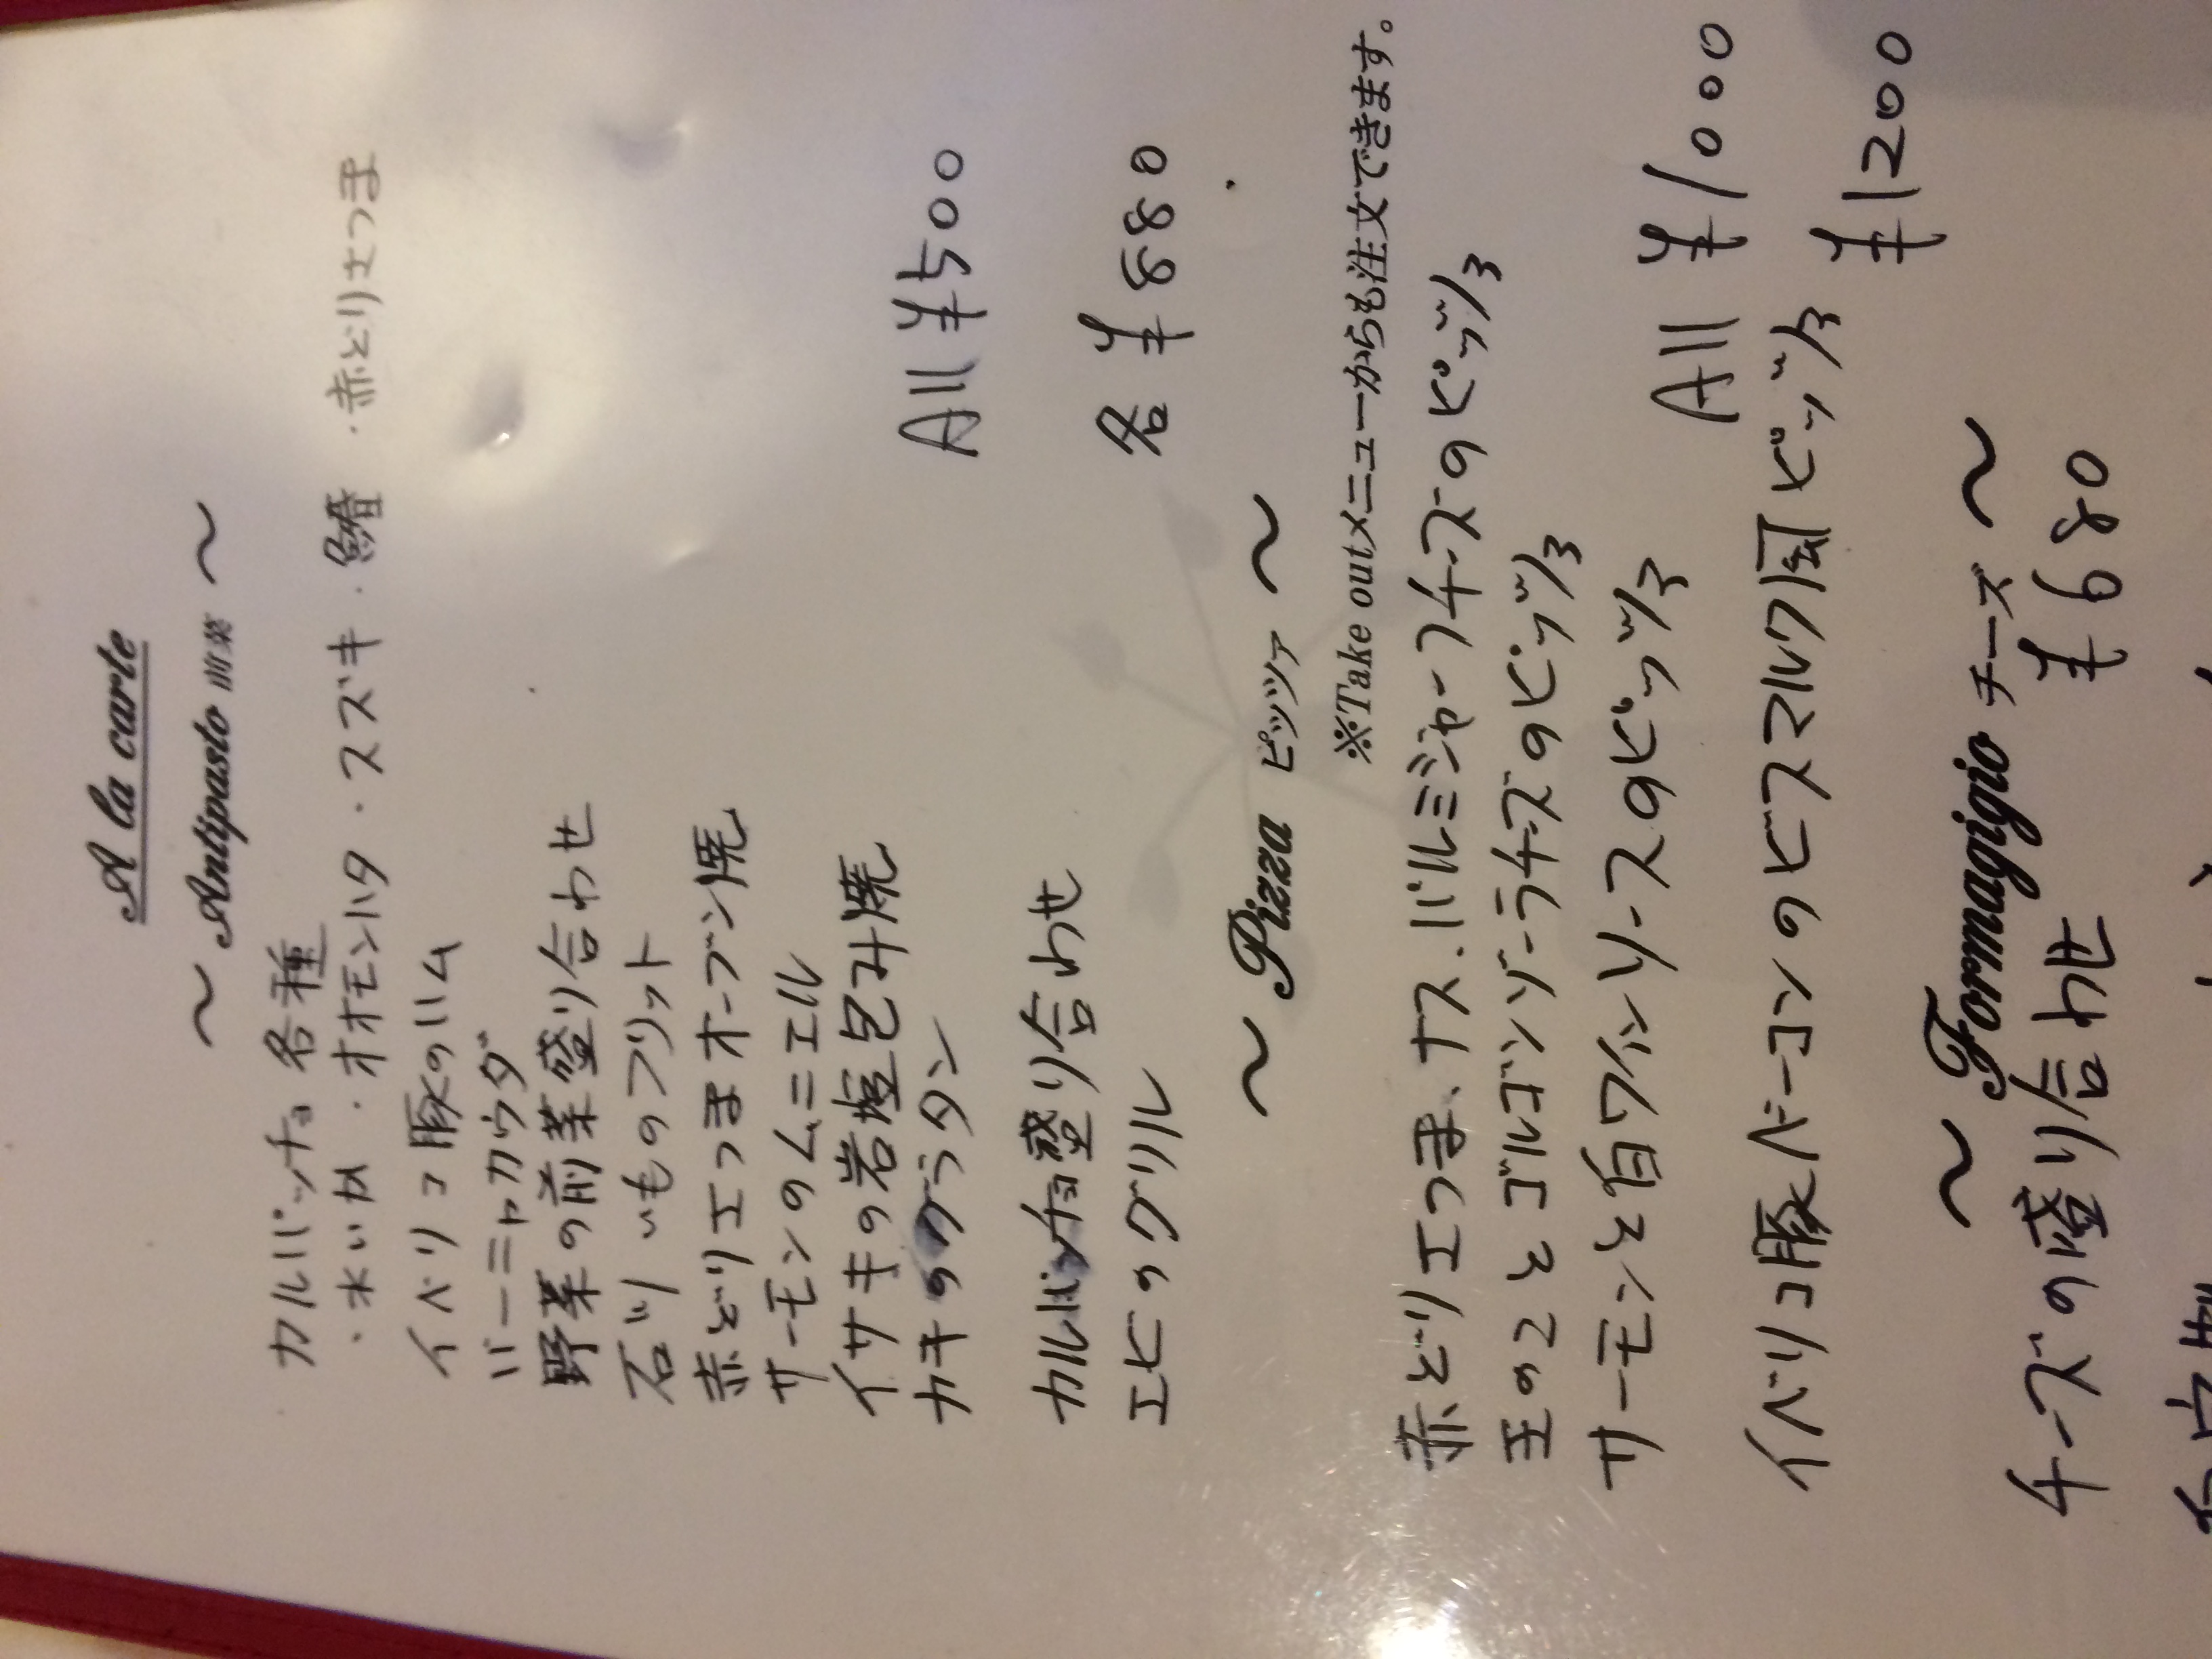 A la carte
～ Antipasto 前菜 ～
カルパッチョ 各種
・水いか ・オオモンハタ ・スズキ ・鰆 ・赤どりさつま
イベリコ豚のハム
バーニャカウダ
野菜の前菜盛り合わせ
石づりいものフリット
赤どりさつまオーブン焼
サーモンのムニエル
イサキの岩塩包み焼
カキのグラタン
All ¥500
カルパッチョ盛り合わせ
エビのグリル
各 ¥880
～ Pizza ピッツァ ～
※Take outメニューからも注文できます。
赤どりさつま、ナス、パルミジャーノチーズのピッツァ
玉ねことゴルゴンゾーラチーズのピッツァ
サーモンと白ワインソースのピッツァ
All ¥1000
イベリコ豚ベーコンのビスマルク風ピッツァ ¥1200
～ Formaggio チーズ ～
チーズの盛り合わせ ¥680